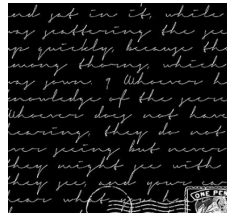 and sat in it, while
was scattering the see
up quickly, because the
among thorns, which
was sown. 9 Whoever h
nowledge of the secre
Whoever does not have
hearing, they do not
ver seeing but never
they might see with
they see, and your ears
hear what you he
ONE PEN